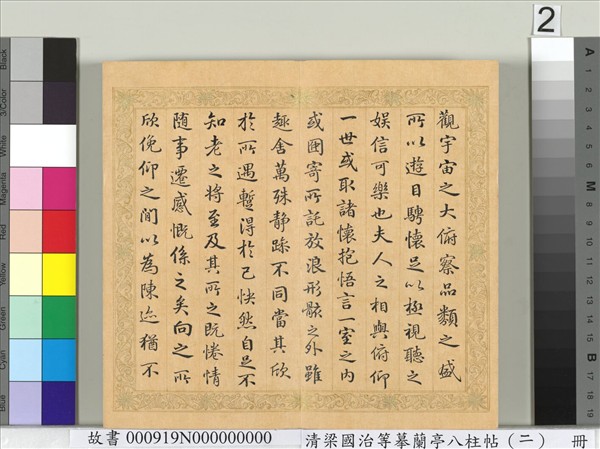 2
觀宇宙之大俯察品類之盛
所以遊目騁懷足以極視聽之
娛信可樂也夫人之相與俯仰
一世或取諸懷抱悟言一室之内
或因寄所託放浪形骸之外雖
趣舍萬殊静躁不同當其欣
於所遇暫得於己怏然自足不
知老之將至及其所之既惓情
随事遷感慨係之矣向之所
欣俛仰之閒以為陳迹猶不
Black
3/Color
White
Magenta
Red
Yellow
Green
Cyan
Blue
A 1 2 3 4 5 6 M 8 9 10 11 12 13 14 15 B 17 18 19
故書 000919N000000000
清梁國治等摹蘭亭八柱帖（二） 冊